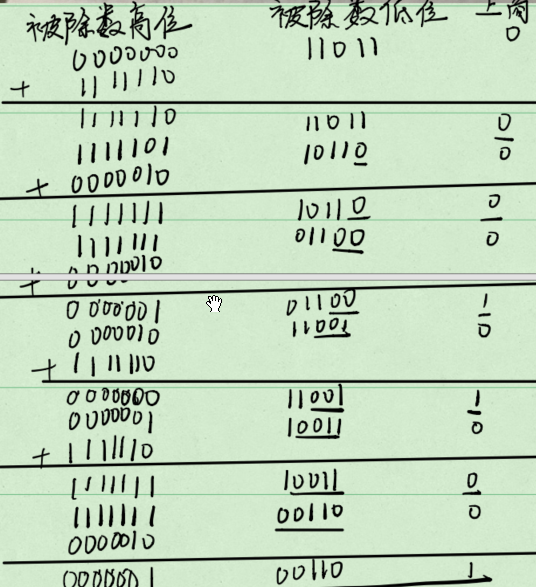 被除数高位 被除数低位 上商
0000000 11011 0
+ 1111110
1111110 11011 0
1111101 10110 0
+ 0000010
1111111 10110 0
1111111 01100 0
+ 0000010
0000001 01100 1
0000010 11001 0
+ 1111110
0000000 11001 1
0000001 10011 0
+ 1111110
1111111 10011 0
1111111 00110 0
0000010
0000001 00110 1